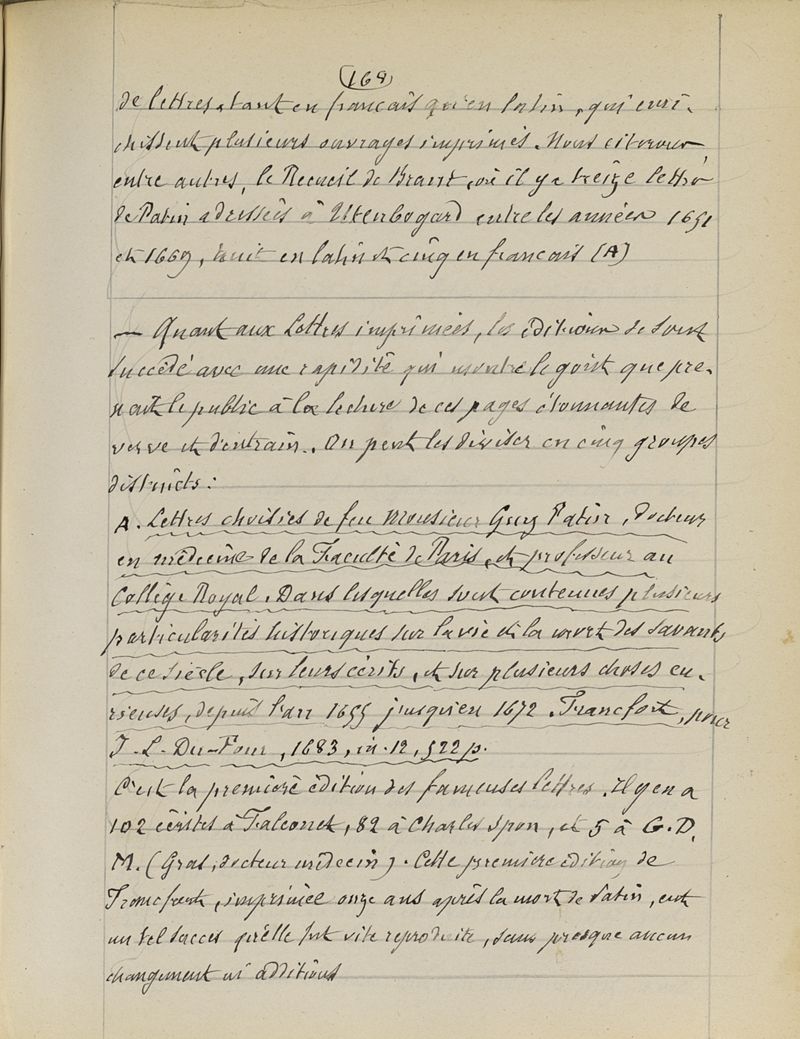 (168)
de lettres, tant en français qu'en latin, qui enri-
chissent plusieurs ouvrages imprimés. Nous citerons,
entre autres, le Recueil de Brant, où il y a treize lettres
de Patin adressées à Utenbogard entre les années 1651
et 1669, huit en latin et cinq en français (A)
— Quant aux Lettres imprimées, les éditions se sont
succédé avec une rapidité qui montre le goût que pre-
nait le public à la lecture de ces pages étonnantes de
verve et d'entrain. On peut les diviser en cinq groupes
distincts :
A. Lettres choisies de feu Monsieur Guy Patin, Docteur
en médecine de la Faculté de Paris, et professeur au
Collège Royal. Dans lesquelles sont contenues plusieurs
particularités historiques sur la vie et la mort des savants
de ce siècle, sur leurs écrits, et sur plusieurs choses cu-
rieuses, depuis l'an 1655 jusqu'en 1672. Francfort, pour
J. L. Du-Four, 1683, in-12, 522 p.
C'est la première édition des fameuses lettres. Il y en a
102 écrites à Falconet, 82 à Charles Spon, et 5 à G. D.
M. (Gras, docteur médecin). Cette première édition de
Francfort, imprimée onze ans après la mort de Patin, eut
un tel succès qu'elle fut vite reproduite, sans presque aucun
changement ni additions